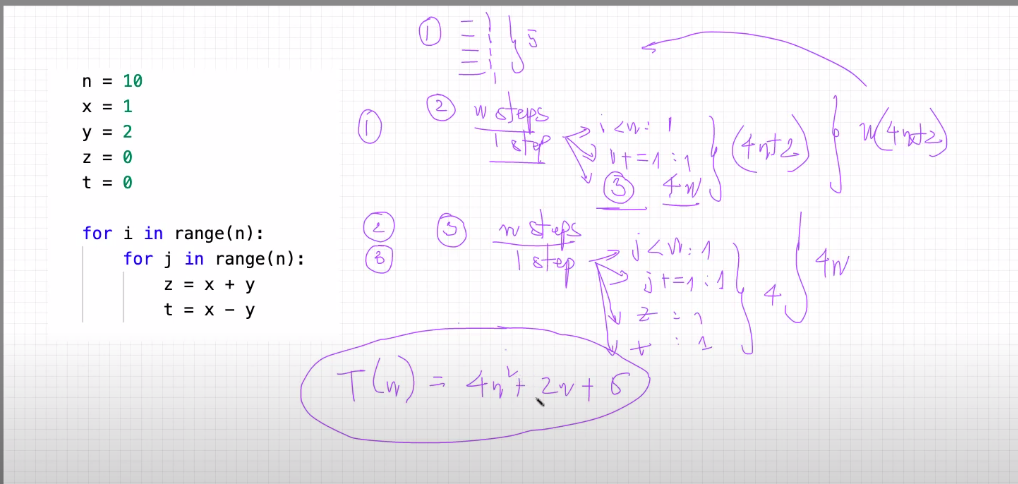 n = 10
x = 1
y = 2
z = 0
t = 0
for i in range(n):
for j in range(n):
z = x + y
t = x - y
① 5
①
② n steps
1 step
i < n : 1
i += 1 : 1
③ 4n
(4n+2)
n(4n+2)
②
③
③ n steps
1 step
j < n : 1
j += 1 : 1
z : 1
t : 1
4
4n
T(n) = 4n² + 2n + 5